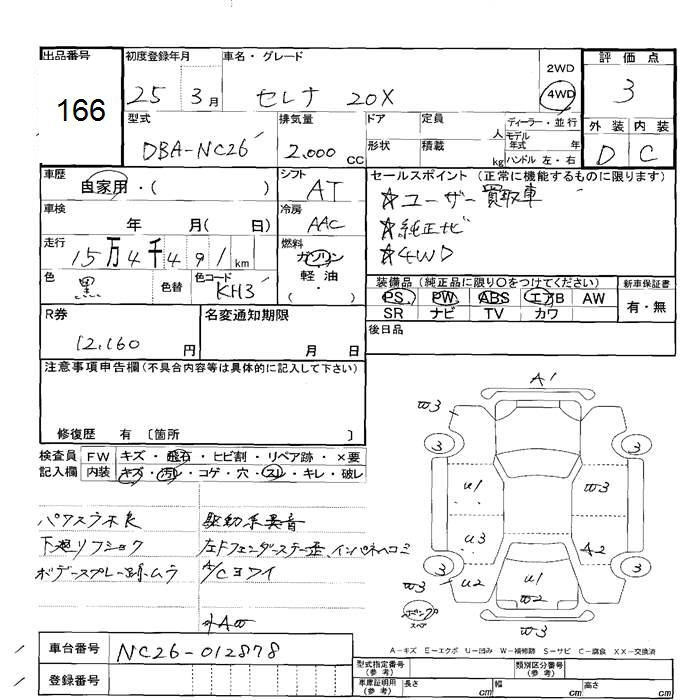 出品番号 初度登録年月 車名・グレード 2WD 評価点
166 25 3月 セレナ 20X 4WD 3
型式 排気量 ドア 定員 人 ディーラー・並行 外装 内装
DBA-NC26 2.000cc 形状 積載 kg モデル年式 年 ハンドル 左・右 D C
車歴 シフト セールスポイント (正常に機能するものに限ります)
自家用・( ) AT ☆ユーザー買取車
車検 冷房 ☆純正ナビ
年 月( 日) AAC ☆4WD
走行 燃料
15万4千491km ガソリン
軽油
( ・ )
色 色替 色コード 装備品(純正品に限り○をつけてください) 新車保証書
黒 KH3 PS PW ABS エアB AW 有・無
SR ナビ TV カワ
R券 名変通知期限 後日品
12,160円 月 日
注意事項申告欄(不具合内容等は具体的に記入して下さい)
修復歴 有 〔箇所 〕
検査員記入欄 FW キズ・飛石・ヒビ割・リペア跡・×要
内装 キズ・汚レ・コゲ・穴・スレ・キレ・破レ
パワスラ不良 駆動系異音
下廻リフショク 左Fフェンダーステー歪、インパネヘコミ
ボデースプレー跡ムラ A/Cヨワイ
外AW
A1
W3
3 3
U1 W3
U3 A2
3 3
U2 U1
W3 W2
W3
スペア
A-キズ E-エクボ U-凹み W-補修跡 S-サビ C-腐食 XX-交換済
車台番号 NC26-012878
登録番号
型式指定番号(参考) 類別区分番号(参考)
車庫証明用(参考) 長さ cm 幅 cm 高さ cm